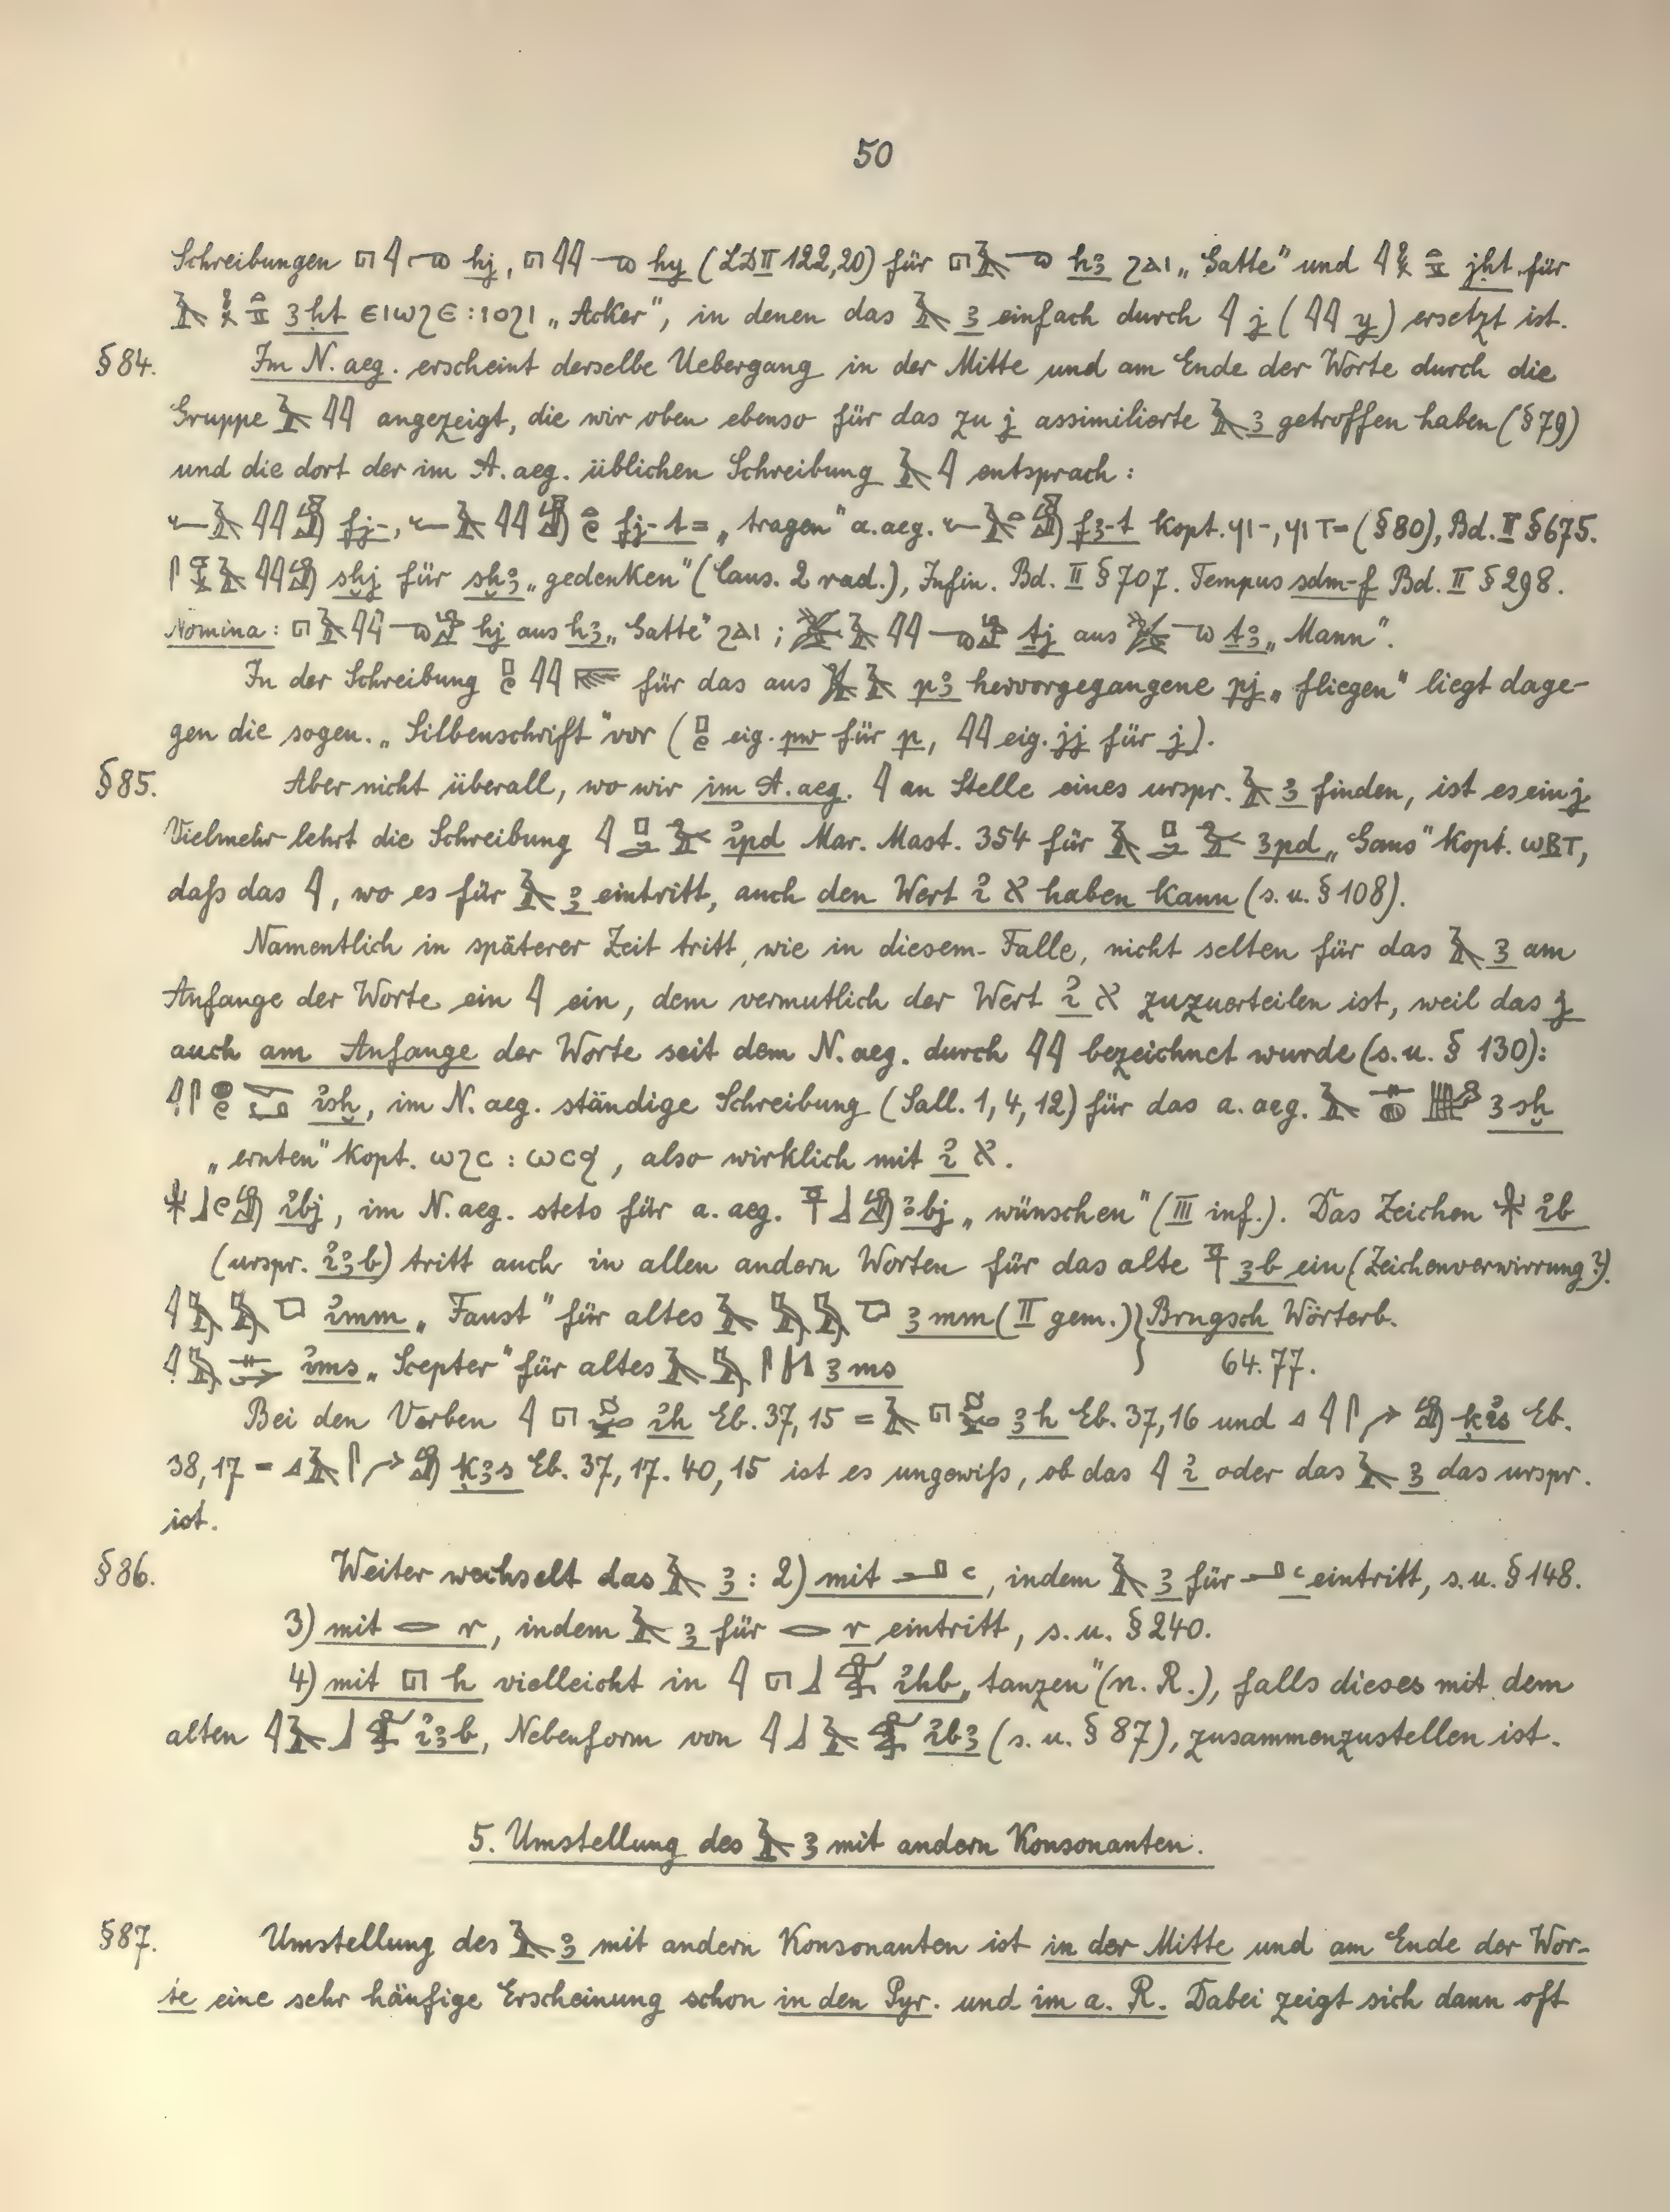 50
Schreibungen 𓉔𓇋𓂸 hj, 𓉔𓇋𓇋𓂸 hy (LD II 122,20) für 𓉔𓄿𓂸 hꜣ ϩⲁⲓ „Gatte" und 𓇋 jḥt für
𓄿 ꜣḥt ⲉⲓⲱϩⲉ : ⲓⲟϩⲓ „Acker", in denen das 𓄿 ꜣ einfach durch 𓇋 j (𓇋𓇋 y) ersetzt ist.
§ 84. Im N. aeg. erscheint derselbe Uebergang in der Mitte und am Ende der Worte durch die
Gruppe 𓄿𓇋𓇋 angezeigt, die wir oben ebenso für das zu j assimilierte 𓄿 ꜣ getroffen haben (§ 79)
und die dort der im A. aeg. üblichen Schreibung 𓄿𓇋 entsprach:
𓆑𓄿𓇋𓇋 fj-, 𓆑𓄿𓇋𓇋 fj-t= „tragen" a. aeg. 𓆑𓄿𓏏 fꜣ-t kopt. ϥⲓ-, ϥⲓⲧ= (§ 80), Bd. II § 675.
𓋴𓄿𓇋𓇋 sḫj für sḫꜣ „gedenken" (Caus. 2 rad.), Infin. Bd. II § 707. Tempus sdm-f Bd. II § 298.
Nomina: 𓉔𓄿𓇋𓇋𓂸 hj aus hꜣ „Gatte" ϩⲁⲓ; 𓅷𓄿𓇋𓇋𓂸 ṯj aus 𓅷𓂸 ṯꜣ „Mann".
In der Schreibung 𓊪𓏲𓇋𓇋 für das aus 𓅮𓄿 pꜣ hervorgegangene pj „fliegen" liegt dage-
gen die sogen. „Silbenschrift" vor (𓊪𓏲 eig. pw für p, 𓇋𓇋 eig. jj für j).
§ 85. Aber nicht überall, wo wir im A. aeg. 𓇋 an Stelle eines urspr. 𓄿 ꜣ finden, ist es ein j
Vielmehr lehrt die Schreibung 𓇋𓊪𓂧 ipd Mar. Mast. 354 für 𓄿𓊪𓂧 ꜣpd „Gans" kopt. ⲱⲃⲧ,
daß das 𓇋, wo es für 𓄿 ꜣ eintritt, auch den Wert i א haben kann (s. u. § 108).
Namentlich in späterer Zeit tritt, wie in diesem Falle, nicht selten für das 𓄿 ꜣ am
Anfange der Worte ein 𓇋 ein, dem vermutlich der Wert i א zuzuerteilen ist, weil das j
auch am Anfange der Worte seit dem N. aeg. durch 𓇋𓇋 bezeichnet wurde (s. u. § 130):
𓇋𓋴𓐍𓏲 isḫ, im N. aeg. ständige Schreibung (Sall. 1, 4, 12) für das a. aeg. 𓄿𓊃𓐍 ꜣsḫ
„ernten" kopt. ⲱϩⲥ : ⲱⲥϧ, also wirklich mit i א.
𓃀𓏲𓀁 ibj, im N. aeg. stets für a. aeg. 𓍋𓃀𓀁 ꜣbj „wünschen" (III inf.). Das Zeichen 𓇼 ib
(urspr. iꜣb) tritt auch in allen andern Worten für das alte 𓍋 ꜣb ein (Zeichenverwirrung?).
𓇋𓅓𓅓 imm „Faust" für altes 𓄿𓅓𓅓 ꜣmm (II gem.) } Brugsch Wörterb.
𓇋𓅓𓊃 ims „Scepter" für altes 𓄿𓅓𓋴 ꜣms } 64. 77.
Bei den Verben 𓇋𓉔 ih Eb. 37,15 = 𓄿𓉔 ꜣh Eb. 37,16 und 𓈎𓇋𓋴 ḳis Eb.
38,17 = 𓈎𓄿𓋴 ḳꜣs Eb. 37, 17. 40, 15 ist es ungewiß, ob das 𓇋 i oder das 𓄿 ꜣ das urspr.
ist.
§ 86. Weiter wechselt das 𓄿 ꜣ: 2) mit 𓂝 ꜥ, indem 𓄿 ꜣ für 𓂝 ꜥ eintritt, s. u. § 148.
3) mit 𓂋 r, indem 𓄿 ꜣ für 𓂋 r eintritt, s. u. § 240.
4) mit 𓉔 h vielleicht in 𓇋𓉔𓃀 ihb „tanzen" (n. R.), falls dieses mit dem
alten 𓇋𓄿𓃀 iꜣb, Nebenform von 𓇋𓃀𓄿 ibꜣ (s. u. § 87), zusammenzustellen ist.
5. Umstellung des 𓄿 ꜣ mit andern Konsonanten.
§ 87. Umstellung des 𓄿 ꜣ mit andern Konsonanten ist in der Mitte und am Ende der Wor-
te eine sehr häufige Erscheinung schon in den Pyr. und im a. R. Dabei zeigt sich dann oft